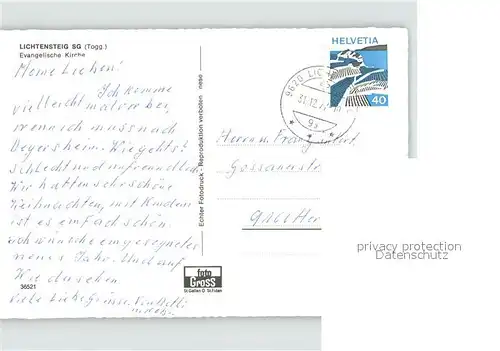 LICHTENSTEIG SG (Togg.)
Evangelische Kirche
Meine Lieben!
Ich komme
vielleicht mal vorbei,
wenn ich muss nach
Degersheim. Wie gehts!
Schlecht und unfreundlich.
Wir hatten sehr schöne
Weihnachten, mit Kindern
ist es einfach schön.
ich wünsche ein gesegnetes
neues Jahr. Und auf
Wiedersehen
viele liebe Grüsse.
36521
Echter Fotodruck - Reproduktion verboten
foto
Gross
St.Gallen
HELVETIA
40
9620
31.12.
9a
Herrn u. Frau
privacy protection
Datenschutz